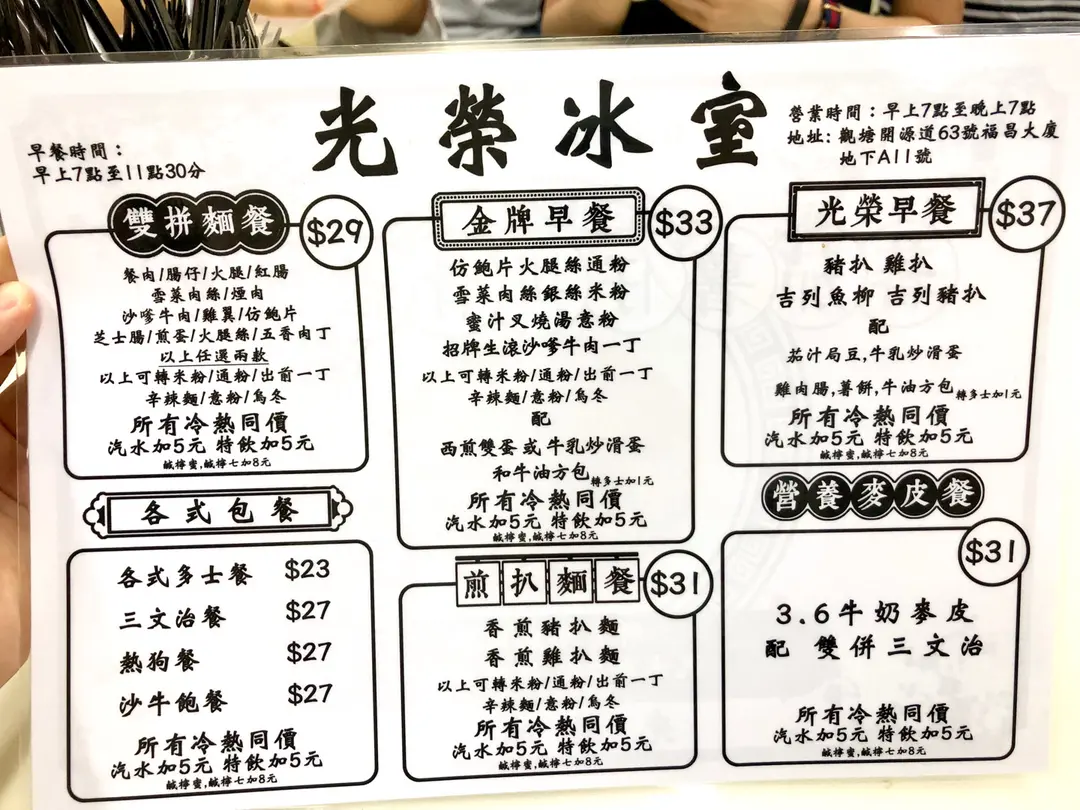 光榮冰室
早餐時間：
早上7點至11點30分
營業時間：早上7點至晚上7點
地址：觀塘開源道63號福昌大廈
地下A11號
雙拼麵餐
$29
餐肉/腸仔/火腿/紅腸
雪菜肉絲/煙肉
沙嗲牛肉/雞翼/仿鮑片
芝士腸/煎蛋/火腿絲/五香肉丁
以上任選兩款
以上可轉米粉/通粉/出前一丁
辛辣麵/意粉/烏冬
所有冷熱同價
汽水加5元 特飲加5元
鹹檸蜜,鹹檸七加8元
各式包餐
各式多士餐 $23
三文治餐 $27
熱狗餐 $27
沙牛飽餐 $27
所有冷熱同價
汽水加5元 特飲加5元
鹹檸蜜,鹹檸七加8元
金牌早餐
$33
仿鮑片火腿絲通粉
雪菜肉絲銀絲米粉
蜜汁叉燒湯意粉
招牌生滾沙嗲牛肉一丁
以上可轉米粉/通粉/出前一丁
辛辣麵/意粉/烏冬
配
西煎雙蛋 或 牛乳炒滑蛋
和牛油方包 轉多士加1元
所有冷熱同價
汽水加5元 特飲加5元
鹹檸蜜,鹹檸七加8元
煎扒麵餐
$31
香煎豬扒麵
香煎雞扒麵
以上可轉米粉/通粉/出前一丁
辛辣麵/意粉/烏冬
所有冷熱同價
汽水加5元 特飲加5元
鹹檸蜜,鹹檸七加8元
光榮早餐
$37
豬扒 雞扒
吉列魚柳 吉列豬扒
配
茄汁局豆,牛乳炒滑蛋
雞肉腸,薯餅,牛油方包 轉多士加1元
所有冷熱同價
汽水加5元 特飲加5元
鹹檸蜜,鹹檸七加8元
營養麥皮餐
$31
3.6牛奶麥皮
配 雙併三文治
所有冷熱同價
汽水加5元 特飲加5元
鹹檸蜜,鹹檸七加8元